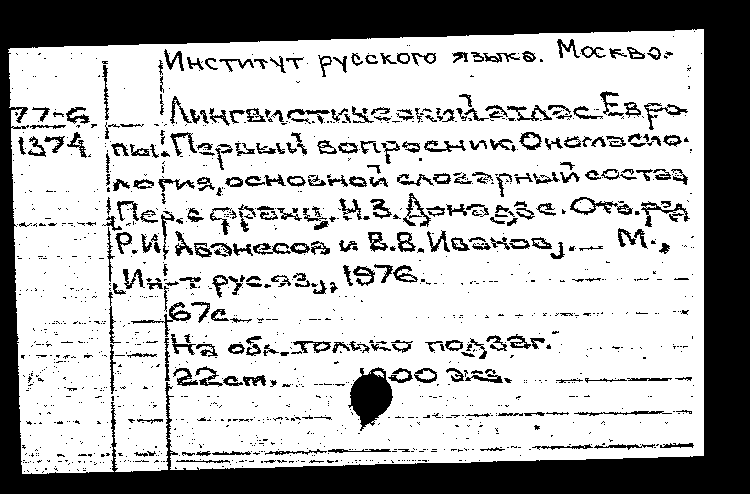 Институт русского языка. Москва.
77-6 Лингвистический атлас Евро-
1374 пы. Первый вопросник. Ономасио-
логия, основной словарный состав
Пер. с франц. Н.З. Донадзе. Отв. ред.
Р.И. Аванесов и В.В. Иванов. — М.,
Ин-т рус. яз., 1976.
67с.
На обл. только подзаг.
22см. 1000 экз.